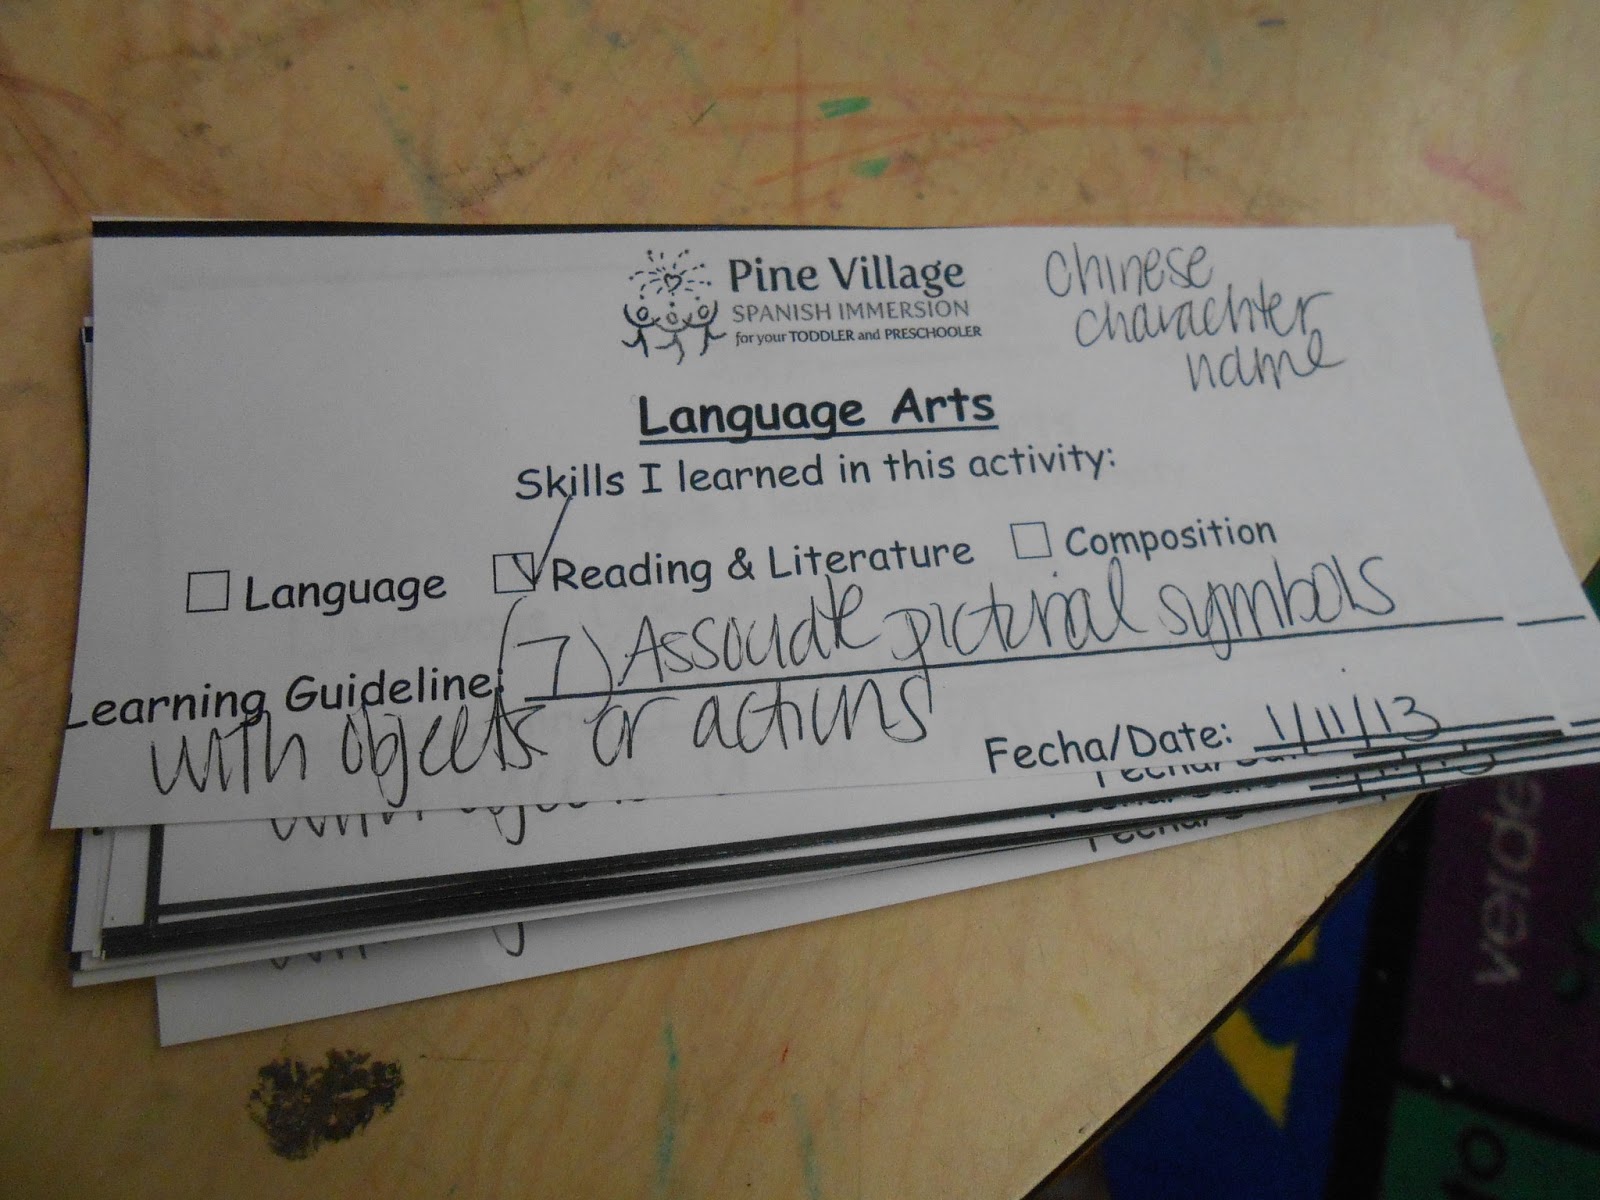 Pine Village
SPANISH IMMERSION
for your TODDLER and PRESCHOOLER
chinese
charachter
name
Language Arts
Skills I learned in this activity:
Language Reading & Literature Composition
Learning Guideline: (7) Associate pictural symbols
with objects or actions
Fecha/Date: 1/11/13
Fecha/
Fecha/
verde